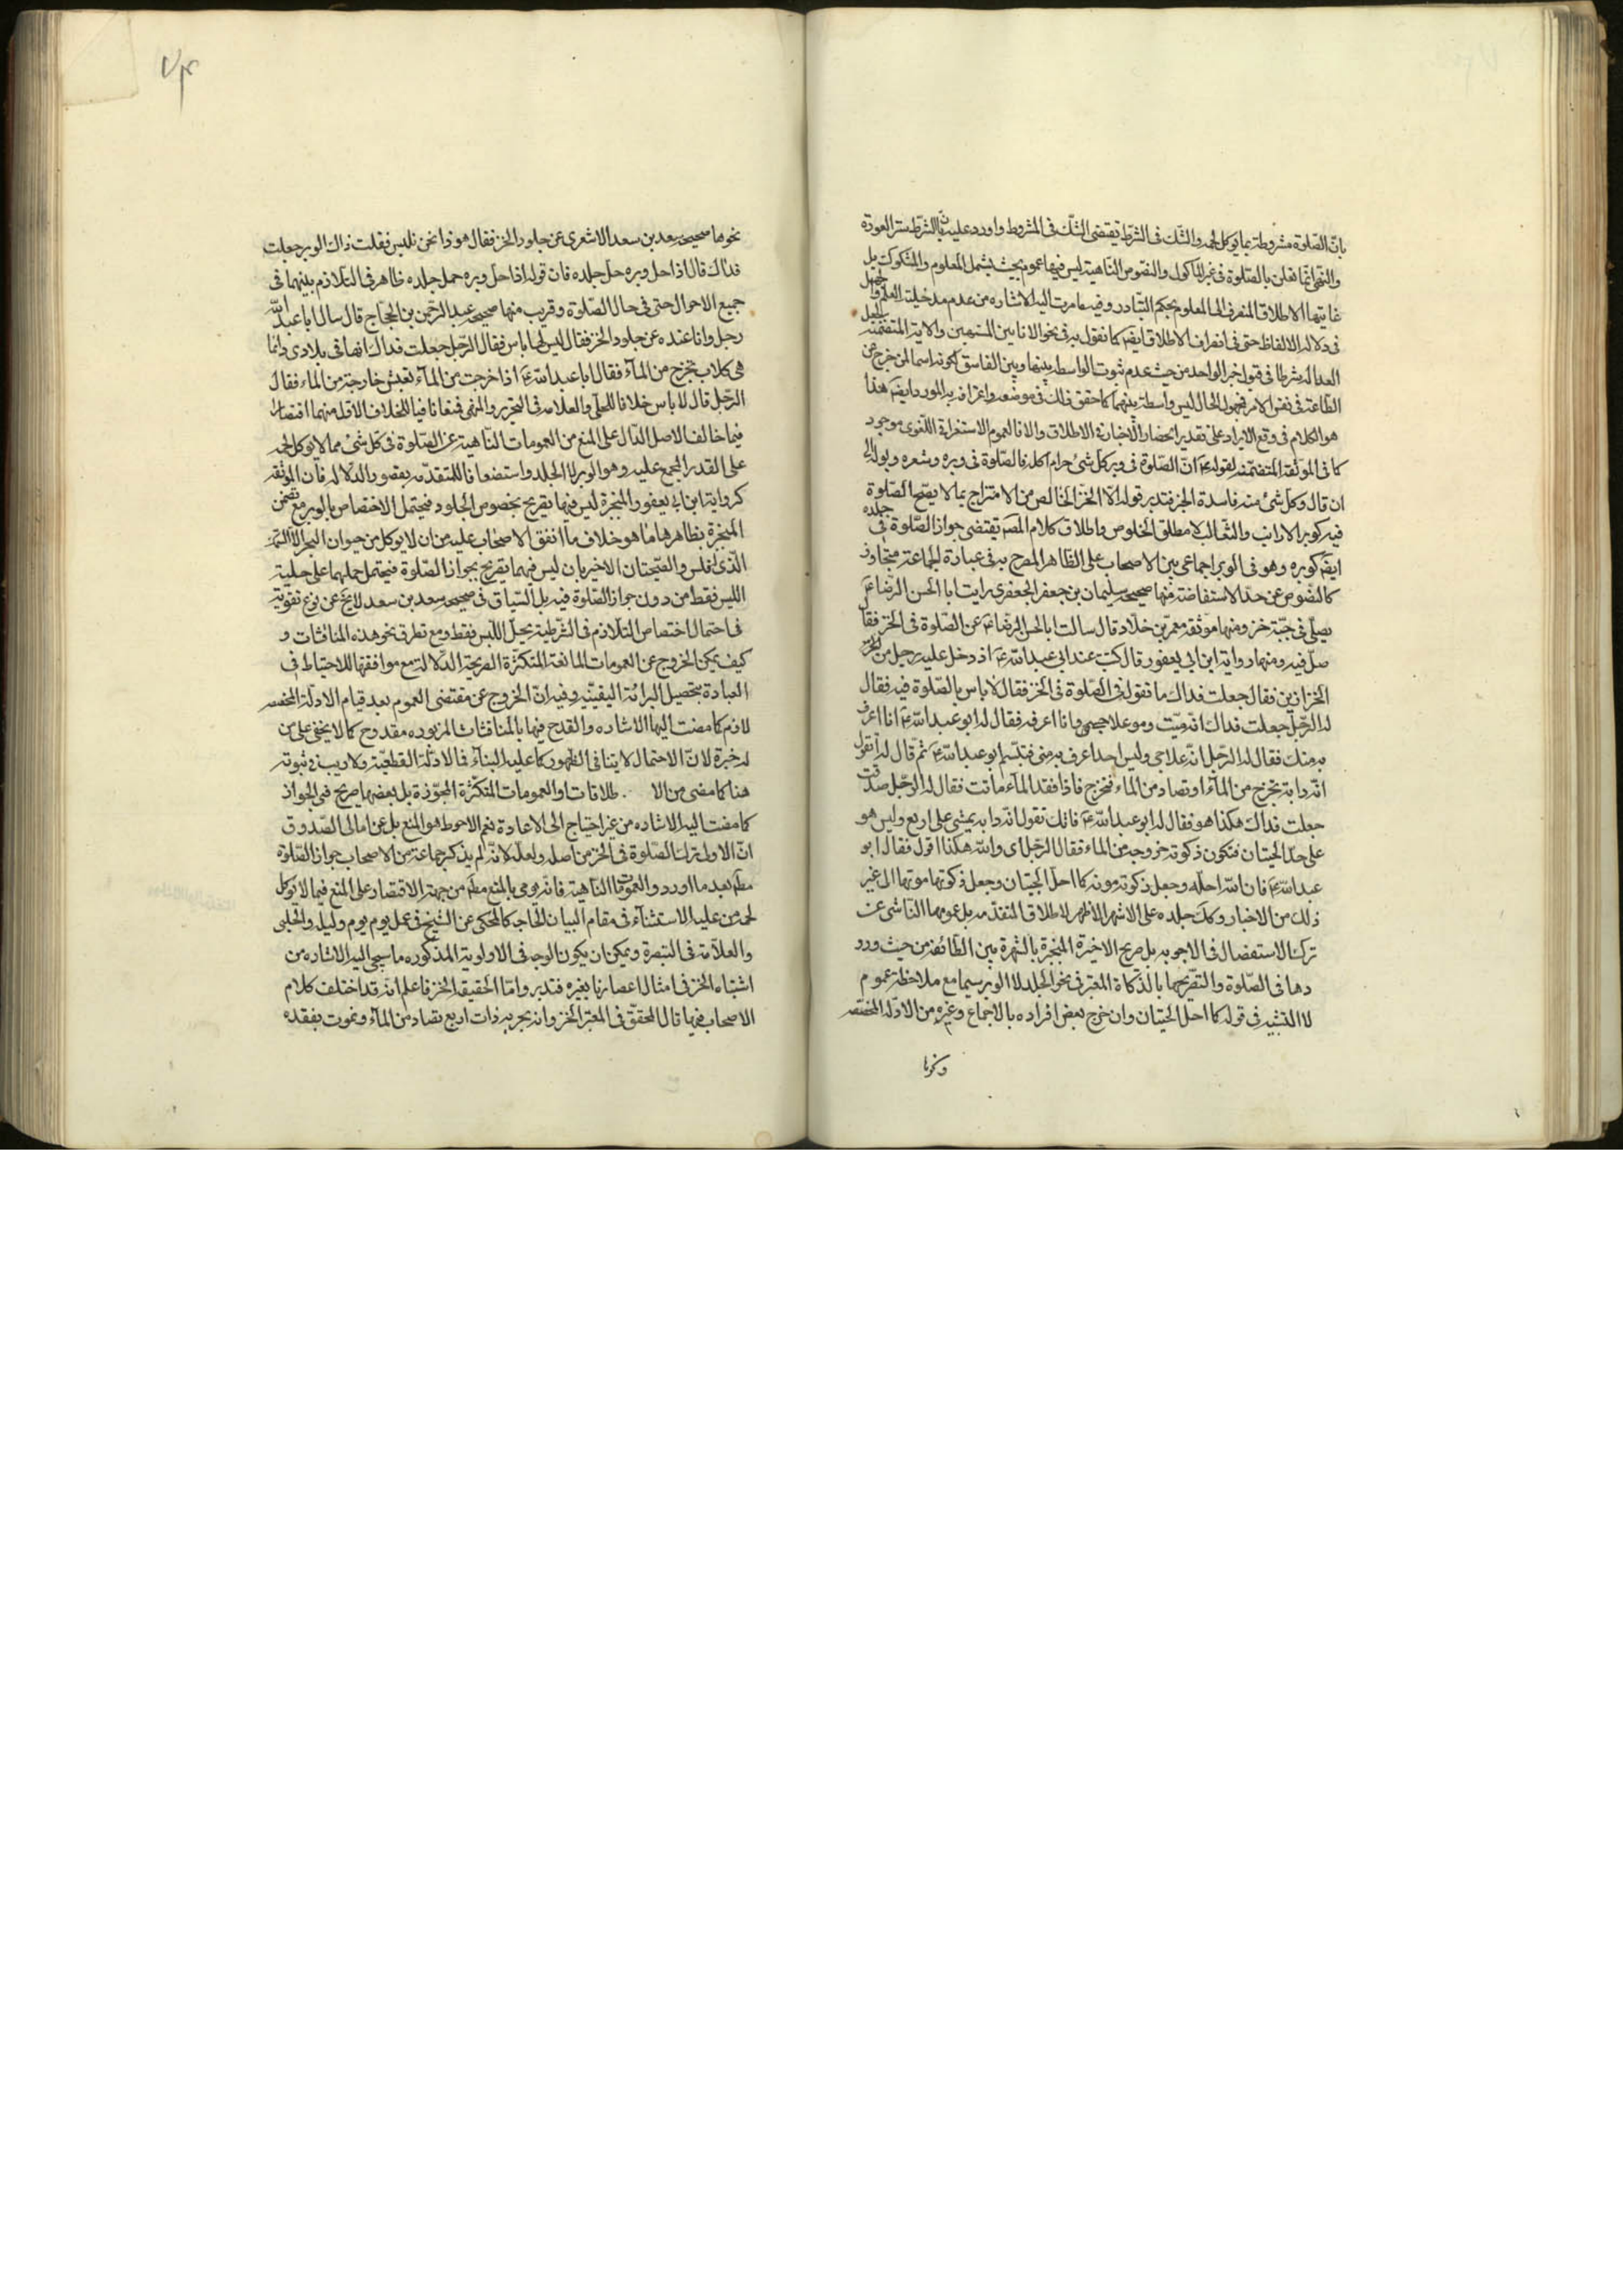 بانّ الصّلوة مشروطة بما يوكل لحمه والشّك فى الشرط يقتضى الشّك فى المشروط واورد عليه بانّ الشرط ستر العورة
والنّهى انما تعلق بالصّلوة فى غير المأكول والنصوص النّاهية ليس فيها عموم بحيث يشمل المعلوم والمشكوك بل
غايتها الاطلاق المنصرف الى المعلوم بحكم التبادر وفيه ما مرت اليه الاشاره من عدم مدخلية العلم والجهل
فى دلالة الالفاظ حتى فى انصراف الاطلاق ايضا كما نقول به فى نحو الانابين المشتبهين والاية المتضمنة
العدالة شرطا فى قبول خبر الواحد من حيث عدم ثبوت الواسطه بينها وبين الفاسق لكونه اسما لمن خرج عن
الطاعة فى نفس الامر فمجهول الحال ليس واسطة بينهما كما حقق ذلك فى موضعه واعترف به المورد ايضا هذا
هو الكلام فى وقع الايراد على تقدير انحصار الاخبار فى الاطلاق والا فالعموم الاستغراقى اللغوى موجود
كما فى الموثقة المتضمنة لقوله ع انّ الصّلوة فى وبر كل شئ حرام اكله فالصّلوة فى وبره وشعره وبوله الى
ان قال وكل شئ منه فاسدة الخبر فتدبر قوله الّا الخزّ الخالص من الامتزاج بما لا يصحّ الصّلوة
فيه كوبر الارانب والثعالب لا مطلق الخلوص واطلاق كلام المصَ يقتضى جواز الصّلوة فى جلده
ايضا كوبره وهو فى الوبر اجماعى بين الاصحاب على الظاهر المصرح به فى عبارة لجماعة متجاوز
كالنصوص عن حدّ الاستفاضة منها صحيحة سليمان بن جعفر الجعفرى رايت ابا الحسن الرّضا ع
يصلّى فى جبّة خز ومنها موثقة معمر بن خلّاد قال سالت ابا الحسن الرضا ع عن الصّلوة فى الخز فقال
صلّ فيه ومنها رواية ابن ابى يعفور قال كنت عند ابى عبد اللّه ع اذ دخل عليه رجل من
الخزازين فقال جعلت فداك ما تقول فى الصّلوة فى الخز فقال لا باس بالصّلوة فيه فقال
له الرّجل جعلت فداك انه ميّت وهو علاجى وانا اعرفه فقال له ابو عبد اللّه ع انا اعرف
به منك فقال له الرّجل انّه علاجى وليس احد اعرف به منى فتبسّم ابو عبد اللّه ع ثم قال له اتقول
انّه دابة تخرج من المآء او تصاد من الماء فتخرج فاذا فقد المآء مات فقال له الرّجل صدقت
جعلت فداك هكذا هو فقال له ابو عبد اللّه ع فانك تقول انّه دابه يمشى على اربع وليس هو
على حدّ الحيتان فتكون ذكوته خروجه من الماء فقال الرّجل اى واللّه هكذا اقول فقال ابو
عبد اللّه ع فان اللّه احلّه وجعل ذكوته موته كما احل الحيتان وجعل ذكوتها موتها الى غير
ذلك من الاخبار وكك جلده على الاشهر الاظهر لاطلاق المتقدّمه بل عمومها الناشى عن
ترك الاستفصال فى الاجوبه بل صريح الاخيرة المنجبرة بالشهرة بين الطّائفة من حيث ورو
دها فى الصّلوة والتصريحها بالذّكاة المعتبر فى نحو الجلد لا الوبر سيما مع ملاحظة عموم
لا التشبيه فى قوله كما احل الحيتان وان خرج بعض افراده بالاجماع وغيره من الادلة المختصه
ونحوها
نحوها صحيحة سعد بن سعد الاشعرى عن جلود الخز فقال هو ذا نحن نلبس فقلت ذاك الوبر جعلت
فداك قال اذا حل وبره حل جلده فان قوله اذا حل وبره حل جلده ظاهر فى التلازم بينهما فى
جميع الاحوال حتى فى حال الصّلوة وقريب منها صحيحة عبد الرّحمن بن الحجاج قال سال ابا عبد اللّه
رجل وانا عنده عن جلود الخز فقال ليس لها باس فقال الرّجل جعلت فداك انها فى بلادى وانّما
هى كلاب تخرج من المآء فقال ابا عبد اللّه ع اذا خرجت من المآء تعيش خارجة من الماء فقال
الرّجل قال لا باس خلافا للحلّى والعلامه فى التحرير والمنتهى فمنعا نافيا للخلاف الاول منهما اقتصارا
فيما خالف الاصل الدّال على المنع من العمومات النّاهية عن الصّلوة فى كل شئ مما لا يوكل لحمه
على القدر المجمع عليه وهو الوبر لا الجلد واستضعافا للمتقدّمه بقصور الدلاله فان الموثقه
كرواية ابن ابى يعفور والمنجبرة ليس فيهما تصريح بخصوص الجلود فيحتمل الاختصاص بالوبر مع تضمن
المنجبرة بظاهرها ما هو خلاف ما اتفق الاصحاب عليه من ان لا يوكل من حيوان البحر الا السّمك
الّذى له فلس والصّحيحتان الاخيرتان ليس فيهما تصريح بجواز الصّلوة فيحتمل حملهما على حلية
اللبس فقط من دون جواز الصّلوة فيه بل السّياق فى صحيحة سعد بن سعد لا يخ عن نوع تقوية
فى احتمال اختصاص التلازم فى الشّرطية بحلّ اللّبس فقط ومع تطرق نحو هذه المناقشات و
كيف يمكن الخروج عن العمومات المانعة المتكثرة الصريحة الدّلالة مع موافقتها للاحتياط فى
العبادة بتحصيل البرائة اليقينيّه وفيه انّ الخروج عن مقتضى العموم بعد قيام الادلّة المخصصه
لازم كما مضت اليها الاشاره والقدح فيها بالمناقشات المزبوره مقدوح كما لا يخفى على من
له خبرة لانّ الاحتمال لا ينافى الظّهور كما عليه البناء فى الادلّة القطعيّة ولا ريب فى ثبوته
هنا كما مضى من الا . طلاقات والعمومات المتكثرة المجوّزة بل بعضها صريح فى الجواز
كما مضت اليه الاشاده من غير احتياج الى الاعادة نعم الاحوط هو المنع بل عن امالى الصّدوق
انّ الاولى ترك الصّلوة فى الخز من اصله ولعلّه لانّه لم يذكر جماعة من الاصحاب جواز الصّلوة
مطم بعد ما اوردوا العمومات النّاهية فانّه يومى بالمنع مطم من جهة الاقتصار على المنع فيما لا يوكل
لحمه من عليه الاستثنآء فى مقام البيان الحاجه كالمحكى عن الشّيخ فى عمل يوم وليلة والحلبى
والعلّامة فى التبصرة ويمكن ان يكون الوجه فى الاولوية المذكوره ما سيجى اليه الاشاره من
اشتباه الخز فى امثال اعصارنا بغيره فتدبر وامّا الحقيقة الخز فاعلم انّه قد اختلف كلام
الاصحاب فيها قال المحقّق فى المعتبر الخز وانه بحريه ذات اربع تصاد من المآء وتموت بفقده